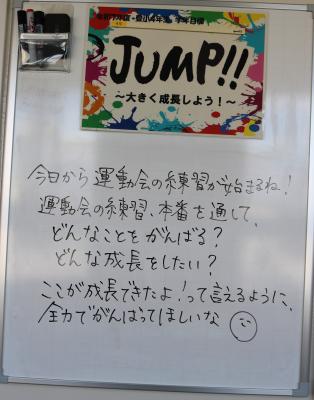 学年目標
JUMP!!
～大きく成長しよう！～
今日から運動会の練習が始まるね！
運動会の練習、本番を通して、
どんなことをがんばる？
どんな成長をしたい？
ここが成長できたよ！って言えるように、
全力でがんばってほしいな